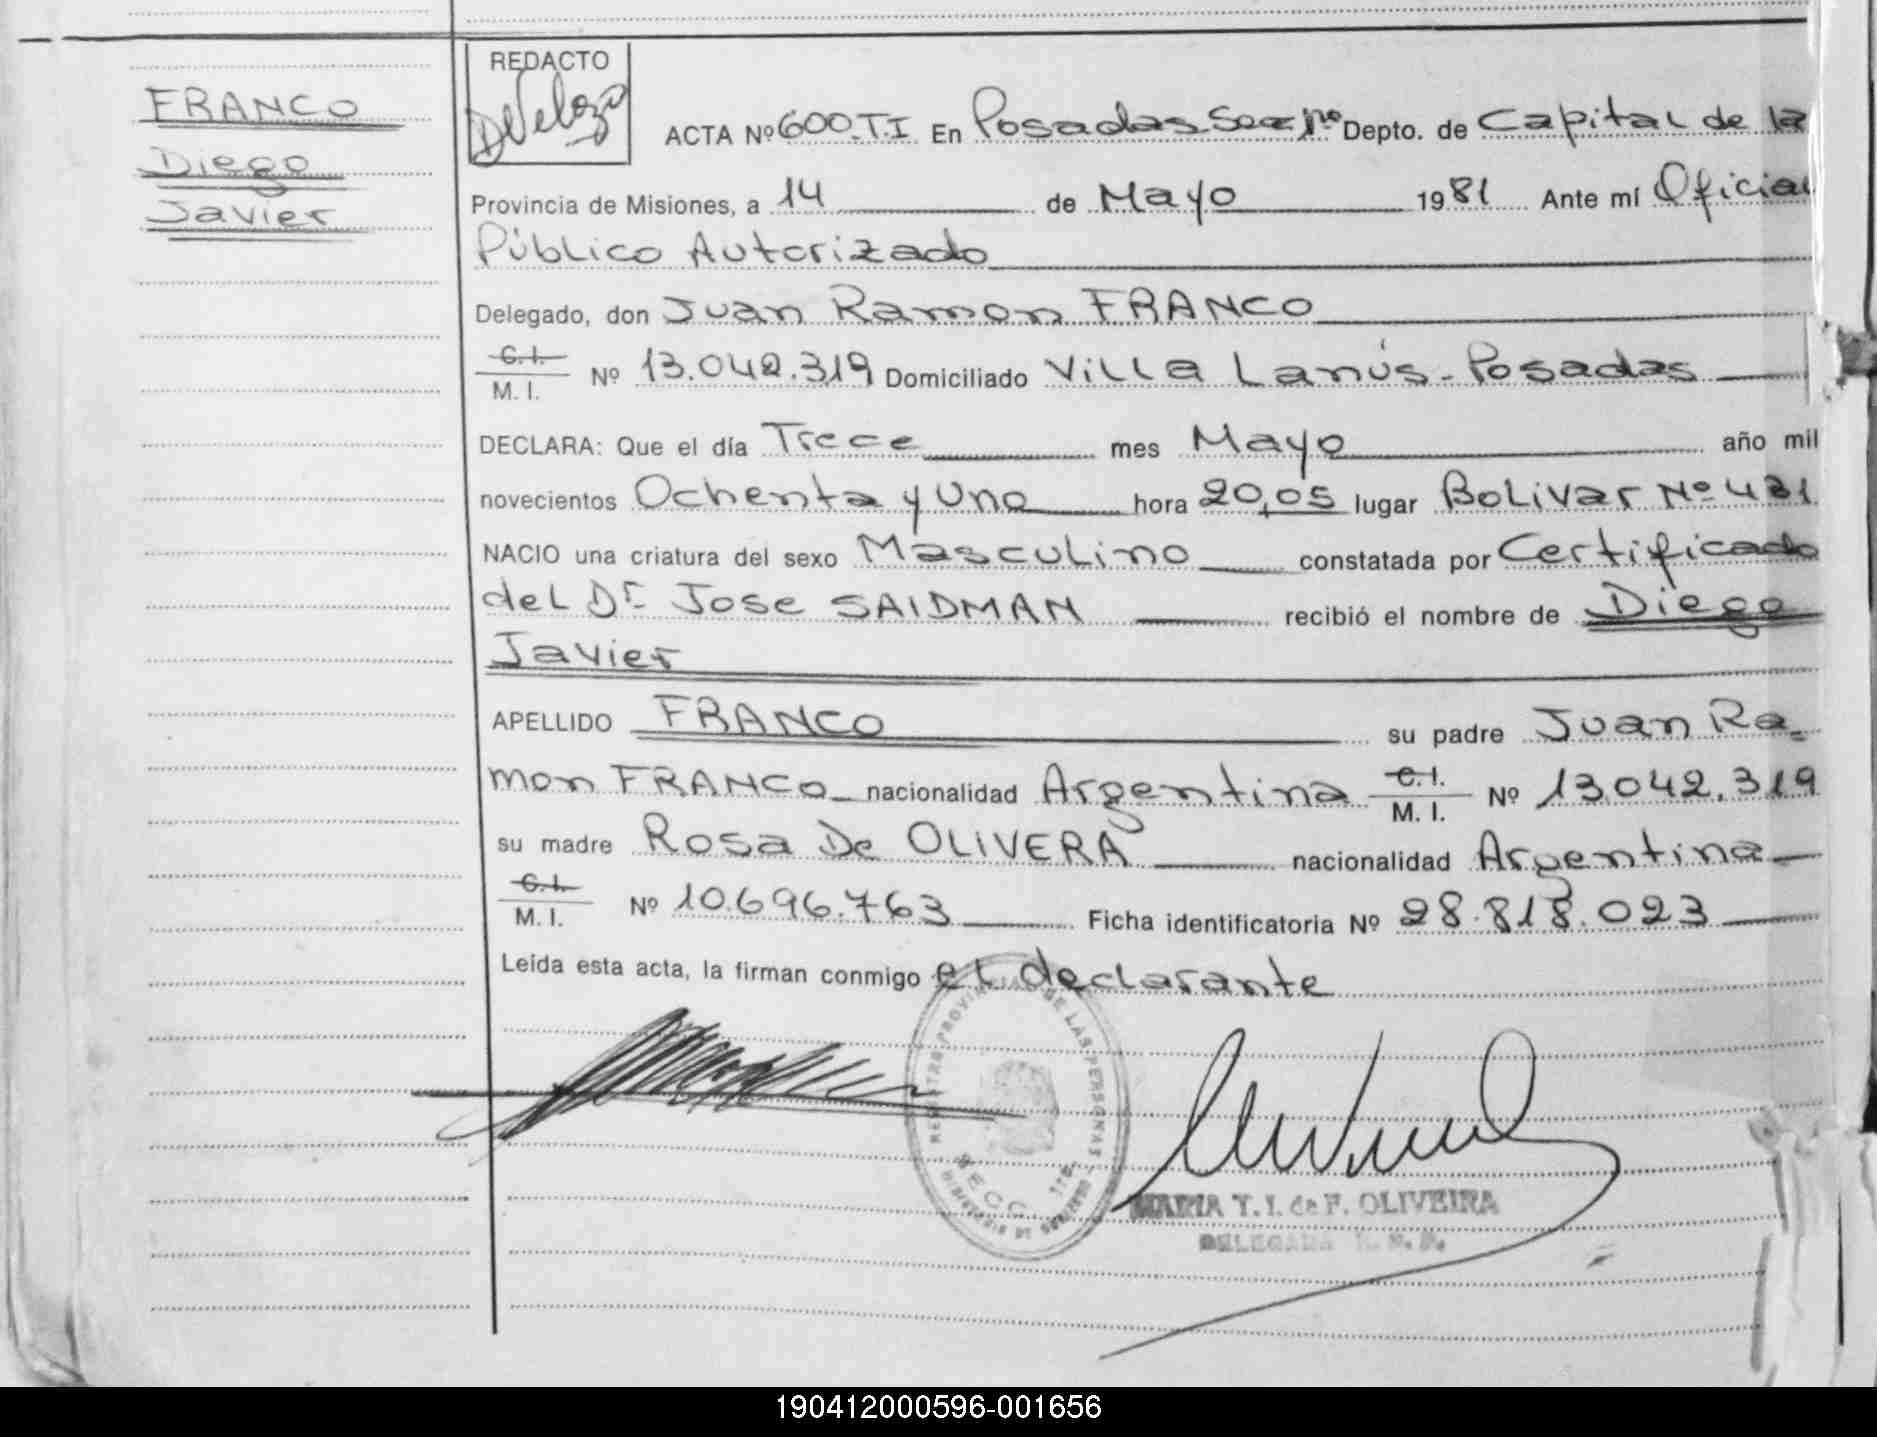 FRANCO
Diego
Javier
REDACTO
ACTA Nº 600.T.I En Posadas Secc 1ra Depto. de Capital de la
Provincia de Misiones, a 14 de Mayo 1981 Ante mí Oficial
Público Autorizado
Delegado, don Juan Ramon FRANCO
C.I.
M. I. Nº 13.042.319 Domiciliado Villa Lanús - Posadas
DECLARA: Que el día Trece mes Mayo año mil
novecientos Ochenta y Uno hora 20,05 lugar Bolivar Nº 431
NACIO una criatura del sexo Masculino constatada por Certificado
del Dr. Jose SAIDMAN recibió el nombre de Diego
Javier
APELLIDO FRANCO su padre Juan Ra-
mon FRANCO nacionalidad Argentina C.I. M. I. Nº 13.042.319
su madre Rosa De OLIVERA nacionalidad Argentina
C.I.
M. I. Nº 10.696.763 Ficha identificatoria Nº 28.818.023
Leída esta acta, la firman conmigo el declarante
REGISTRO PROVINCIAL DE LAS PERSONAS
MARIA T. I. de F. OLIVEIRA
DELEGADA R. P. P.
190412000596-001656